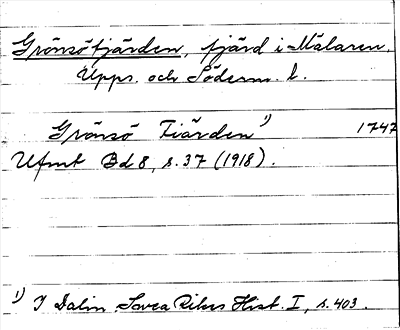 Grönsöfjärden, fjärd i Mälaren,
Upps. och Söderm. l.
Grönsö Fiärden 1) 1747
Ufmt Bd 8, s. 37 (1918).
1) I Dalin, Svea Rikes Hist. I, s. 403.